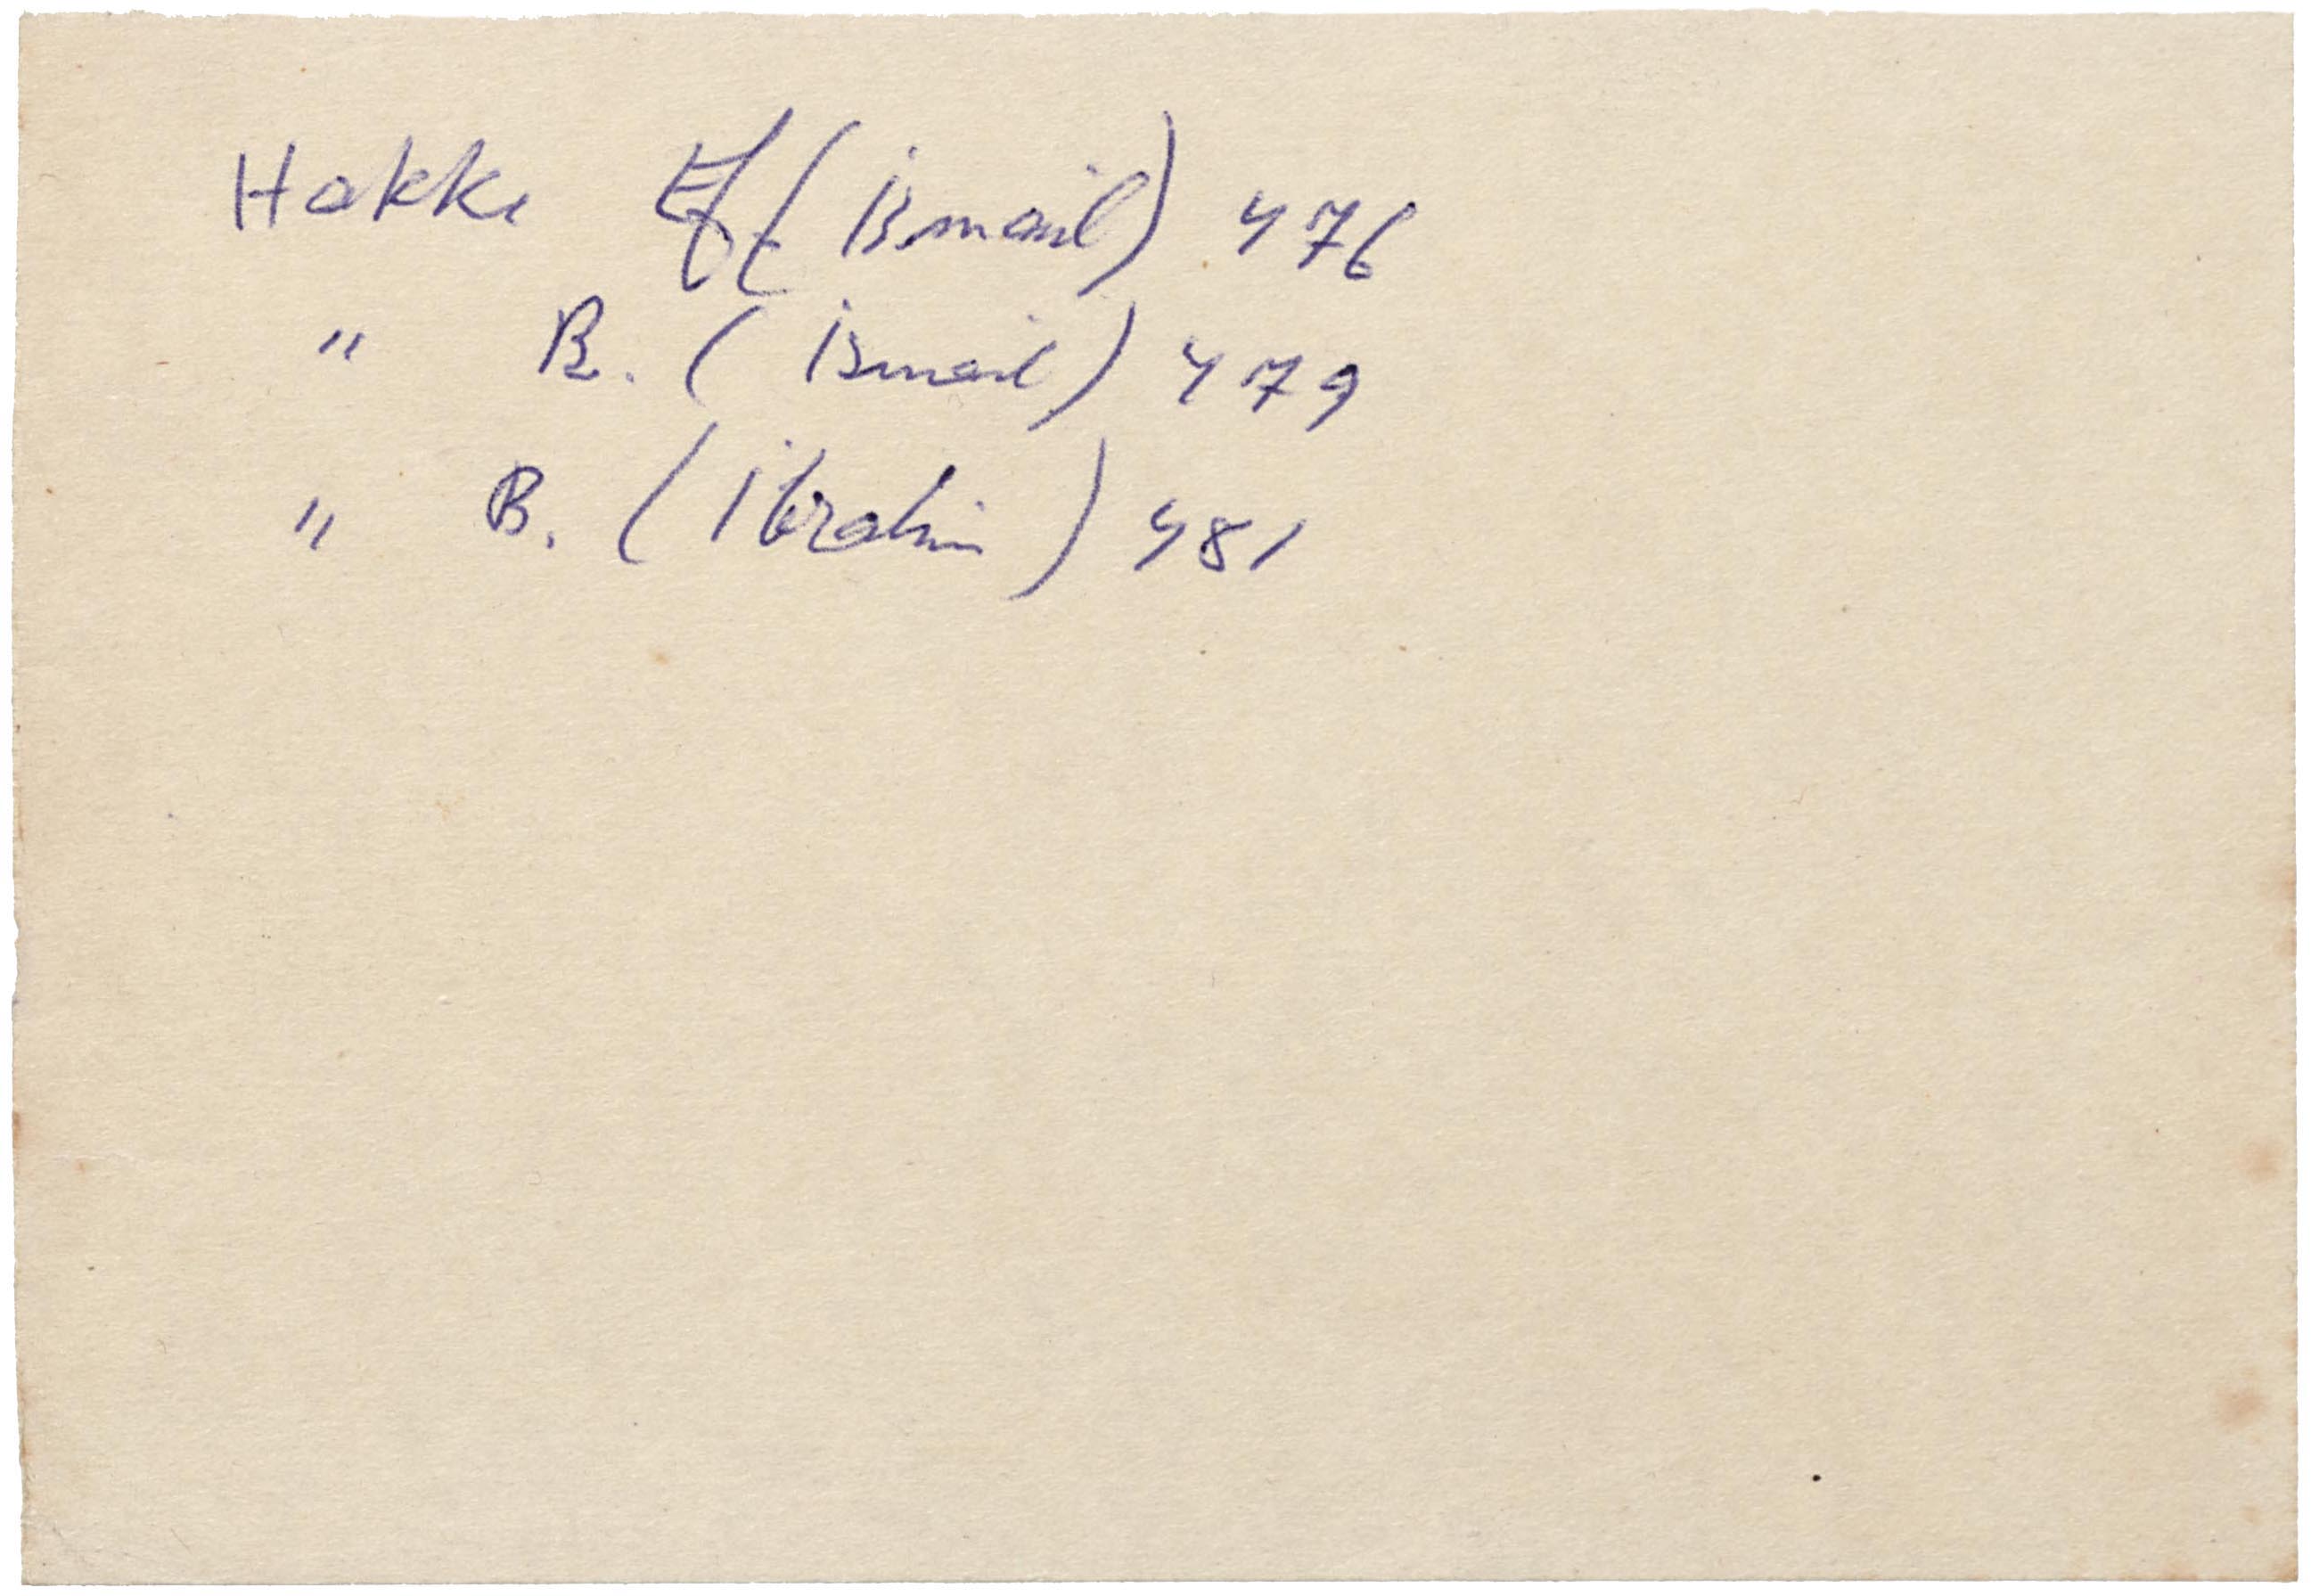 Hakkı Ef. (İsmail) 476
" B. (İsmail) 479
" B. (İbrahim) 481